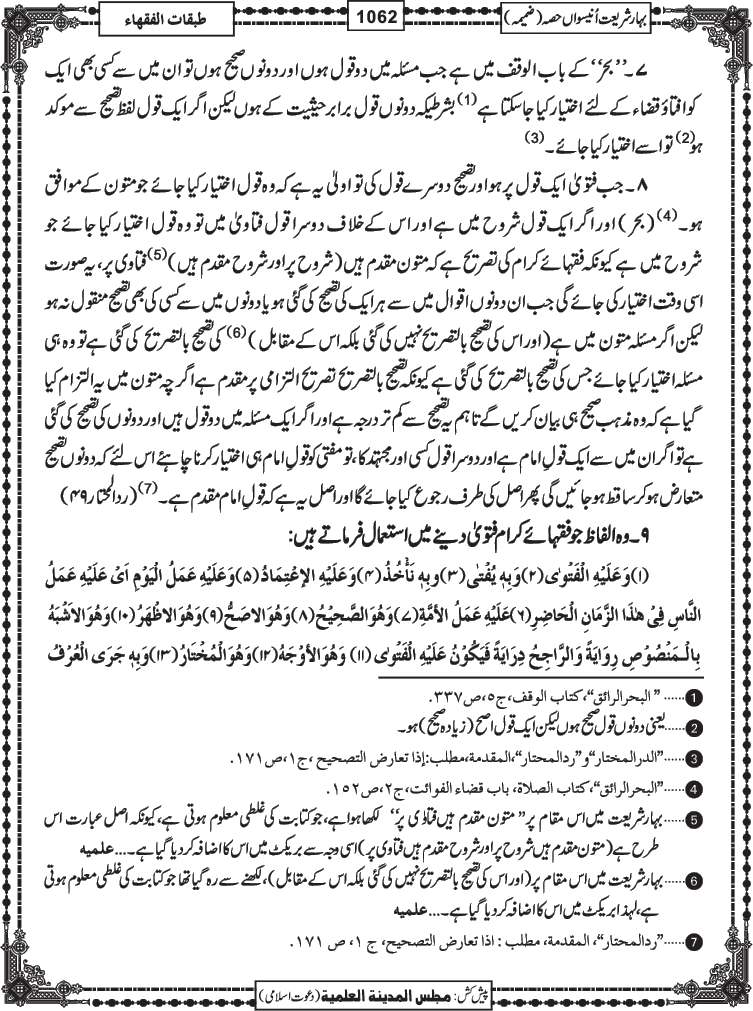 بہارِ شریعت اُنیسواں حصہ (ضمیمہ)
1062
طبقات الفقهاء
۷۔ ’’بحر‘‘ کے باب الوقف میں ہے جب مسئلہ میں دو قول ہوں اور دونوں صحیح ہوں تو ان میں سے کسی بھی ایک
کو افتاؤ قضاء کے لئے اختیار کیا جا سکتا ہے(1) بشرطیکہ دونوں قول برابر حیثیت کے ہوں لیکن اگر ایک قول لفظ تصحیح سے موکد
ہو(2) تو اسے اختیار کیا جائے۔(3)
۸۔ جب فتویٰ ایک قول پر ہو اور تصحیح دوسرے قول کی تو اولیٰ یہ ہے کہ وہ قول اختیار کیا جائے جو متون کے موافق
ہو۔(4) (بحر) اور اگر ایک قول شروح میں ہے اور اس کے خلاف دوسرا قول فتاویٰ میں تو وہ قول اختیار کیا جائے جو
شروح میں ہے کیونکہ فقہائے کرام کی تصریح ہے کہ متون مقدم ہیں (شروح پر اور شروح مقدم ہیں)(5) فتاوی پر، یہ صورت
اسی وقت اختیار کی جائے گی جب ان دونوں اقوال میں سے ہر ایک کی تصحیح کی گئی ہو یا دونوں میں سے کسی کی بھی تصحیح منقول نہ ہو
لیکن اگر مسئلہ متون میں ہے (اور اس کی تصحیح بالتصریح نہیں کی گئی بلکہ اس کے مقابل)(6) کی تصحیح بالتصریح کی گئی ہے تو وہ ہی
مسئلہ اختیار کیا جائے جس کی تصحیح بالتصریح کی گئی ہے کیونکہ تصحیح بالتصریح تصریح التزامی پر مقدم ہے اگرچہ متون میں یہ التزام کیا
گیا ہے کہ وہ مذہب صحیح ہی بیان کریں گے تاہم یہ تصحیح سے کم تر درجہ ہے اور اگر ایک مسئلہ میں دو قول ہیں اور دونوں کی تصحیح کی گئی
ہے تو اگر ان میں سے ایک قول امام ہے اور دوسرا قول کسی اور مجتہد کا، تو مفتی کو قولِ امام ہی اختیار کرنا چاہئے اس لئے کہ دونوں تصحیح
متعارض ہو کر ساقط ہو جائیں گی پھر اصل کی طرف رجوع کیا جائے گا اور اصل یہ ہے کہ قولِ امام مقدم ہے۔(7) (ردالمحتار ۴۹)
۹۔ وہ الفاظ جو فقہائے کرام فتویٰ دینے میں استعمال فرماتے ہیں:
(۱) وَعَلَيْهِ الْفَتْوٰى (۲) وَبِهٖ يُفْتٰى (۳) وبِهٖ نَأْخُذُ (۴) وَعَلَيْهِ الْاِعْتِمَادُ (۵) وَعَلَيْهِ عَمَلُ الْيَوْمِ اَىْ عَلَيْهِ عَمَلُ
النَّاسِ فِىْ هٰذَا الزَّمَانِ الْحَاضِرِ (۶) عَلَيْهِ عَمَلُ الْأُمَّةِ (۷) وَهُوَ الصَّحِيْحُ (۸) وَهُوَ الْاَصَحُّ (۹) وَهُوَ الْاَظْهَرُ (۱۰) وَهُوَ الْاَشْبَهُ
بِالْمَنْصُوْصِ رِوَايَةً وَالرَّاجِحُ دِرَايَةً فَيَكُوْنُ عَلَيْهِ الْفَتْوٰى (۱۱) وَهُوَ الْاَوْجَهُ (۱۲) وَهُوَ الْمُخْتَارُ (۱۳) وَبِهٖ جَرَى الْعُرْفُ
1 ...... ”البحرالرائق“، كتاب الوقف، ج٥، ص٣٣٧.
2 ...... یعنی دونوں قول صحیح ہوں لیکن ایک قول اصح (زیادہ صحیح) ہو۔
3 ...... ”الدرالمختار“ و ”ردالمحتار“، المقدمة، مطلب: إذا تعارض التصحيح، ج١، ص١٧١.
4 ...... ”البحرالرائق“، كتاب الصلاة، باب قضاء الفوائت، ج٢، ص١٥٢.
5 ...... بہارِ شریعت میں اس مقام پر ”متون مقدم ہیں فتاوٰی پر“ لکھا ہوا ہے، جو کتابت کی غلطی معلوم ہوتی ہے، کیونکہ اصل عبارت اس
طرح ہے (متون مقدم ہیں شروح پر اور شروح مقدم ہیں فتاوی پر) اسی وجہ سے بریکٹ میں اس کا اضافہ کر دیا گیا ہے۔... علمیہ
6 ...... بہارِ شریعت میں اس مقام پر (اور اس کی تصحیح بالتصریح نہیں کی گئی بلکہ اس کے مقابل)، لکھنے سے رہ گیا تھا جو کتابت کی غلطی معلوم ہوتی
ہے، لہذا بریکٹ میں اس کا اضافہ کر دیا گیا ہے۔... علمیہ
7 ...... ”ردالمحتار“، المقدمة، مطلب : اذا تعارض التصحيح، ج ١، ص ١٧١.
پیش کش: مجلس المدینة العلمیة (دعوت اسلامی)